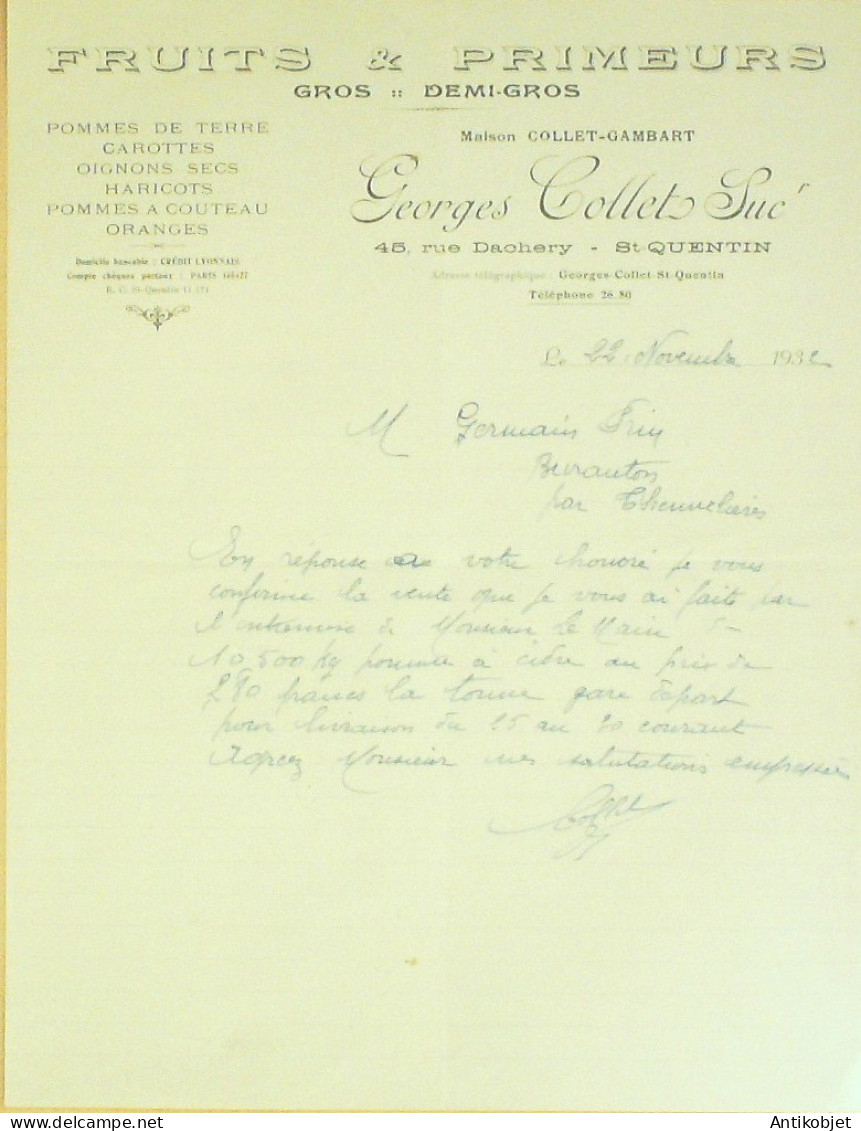 FRUITS & PRIMEURS
GROS :: DEMI-GROS
POMMES DE TERRE
CAROTTES
OIGNONS SECS
HARICOTS
POMMES A COUTEAU
ORANGES
Domicile bancable : CRÉDIT LYONNAIS
Compte chèques postaux : PARIS
R. C. St-Quentin
Maison COLLET-GAMBART
Georges Collet Sucr
45, rue Dachery - St QUENTIN
Adresse télégraphique : Georges-Collet-St-Quentin
Téléphone 26.80
Le 22 Novembre 1932
M Germain
par
En réponse votre honoré je vous
confirme la vente que je vous ai faite par
l'entremise de Monsieur Le Main
10.500 kg pomme à cidre au prix de
280 francs la tonne gare départ
pour livraison du 25 au 30 courant
Agréez Monsieur mes salutations empressées
Collet
Antikobjet - Delcampe.net